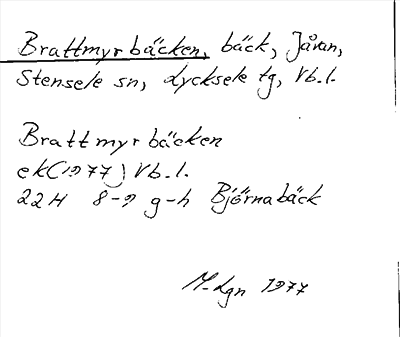 Brattmyrbäcken, bäck, Jåran,
Stensele sn, Lycksele tg, Vb.l.
Brattmyrbäcken
ek(1977) Vb.l.
22H 8-9 g-h Björnabäck
M-Lgn 1977